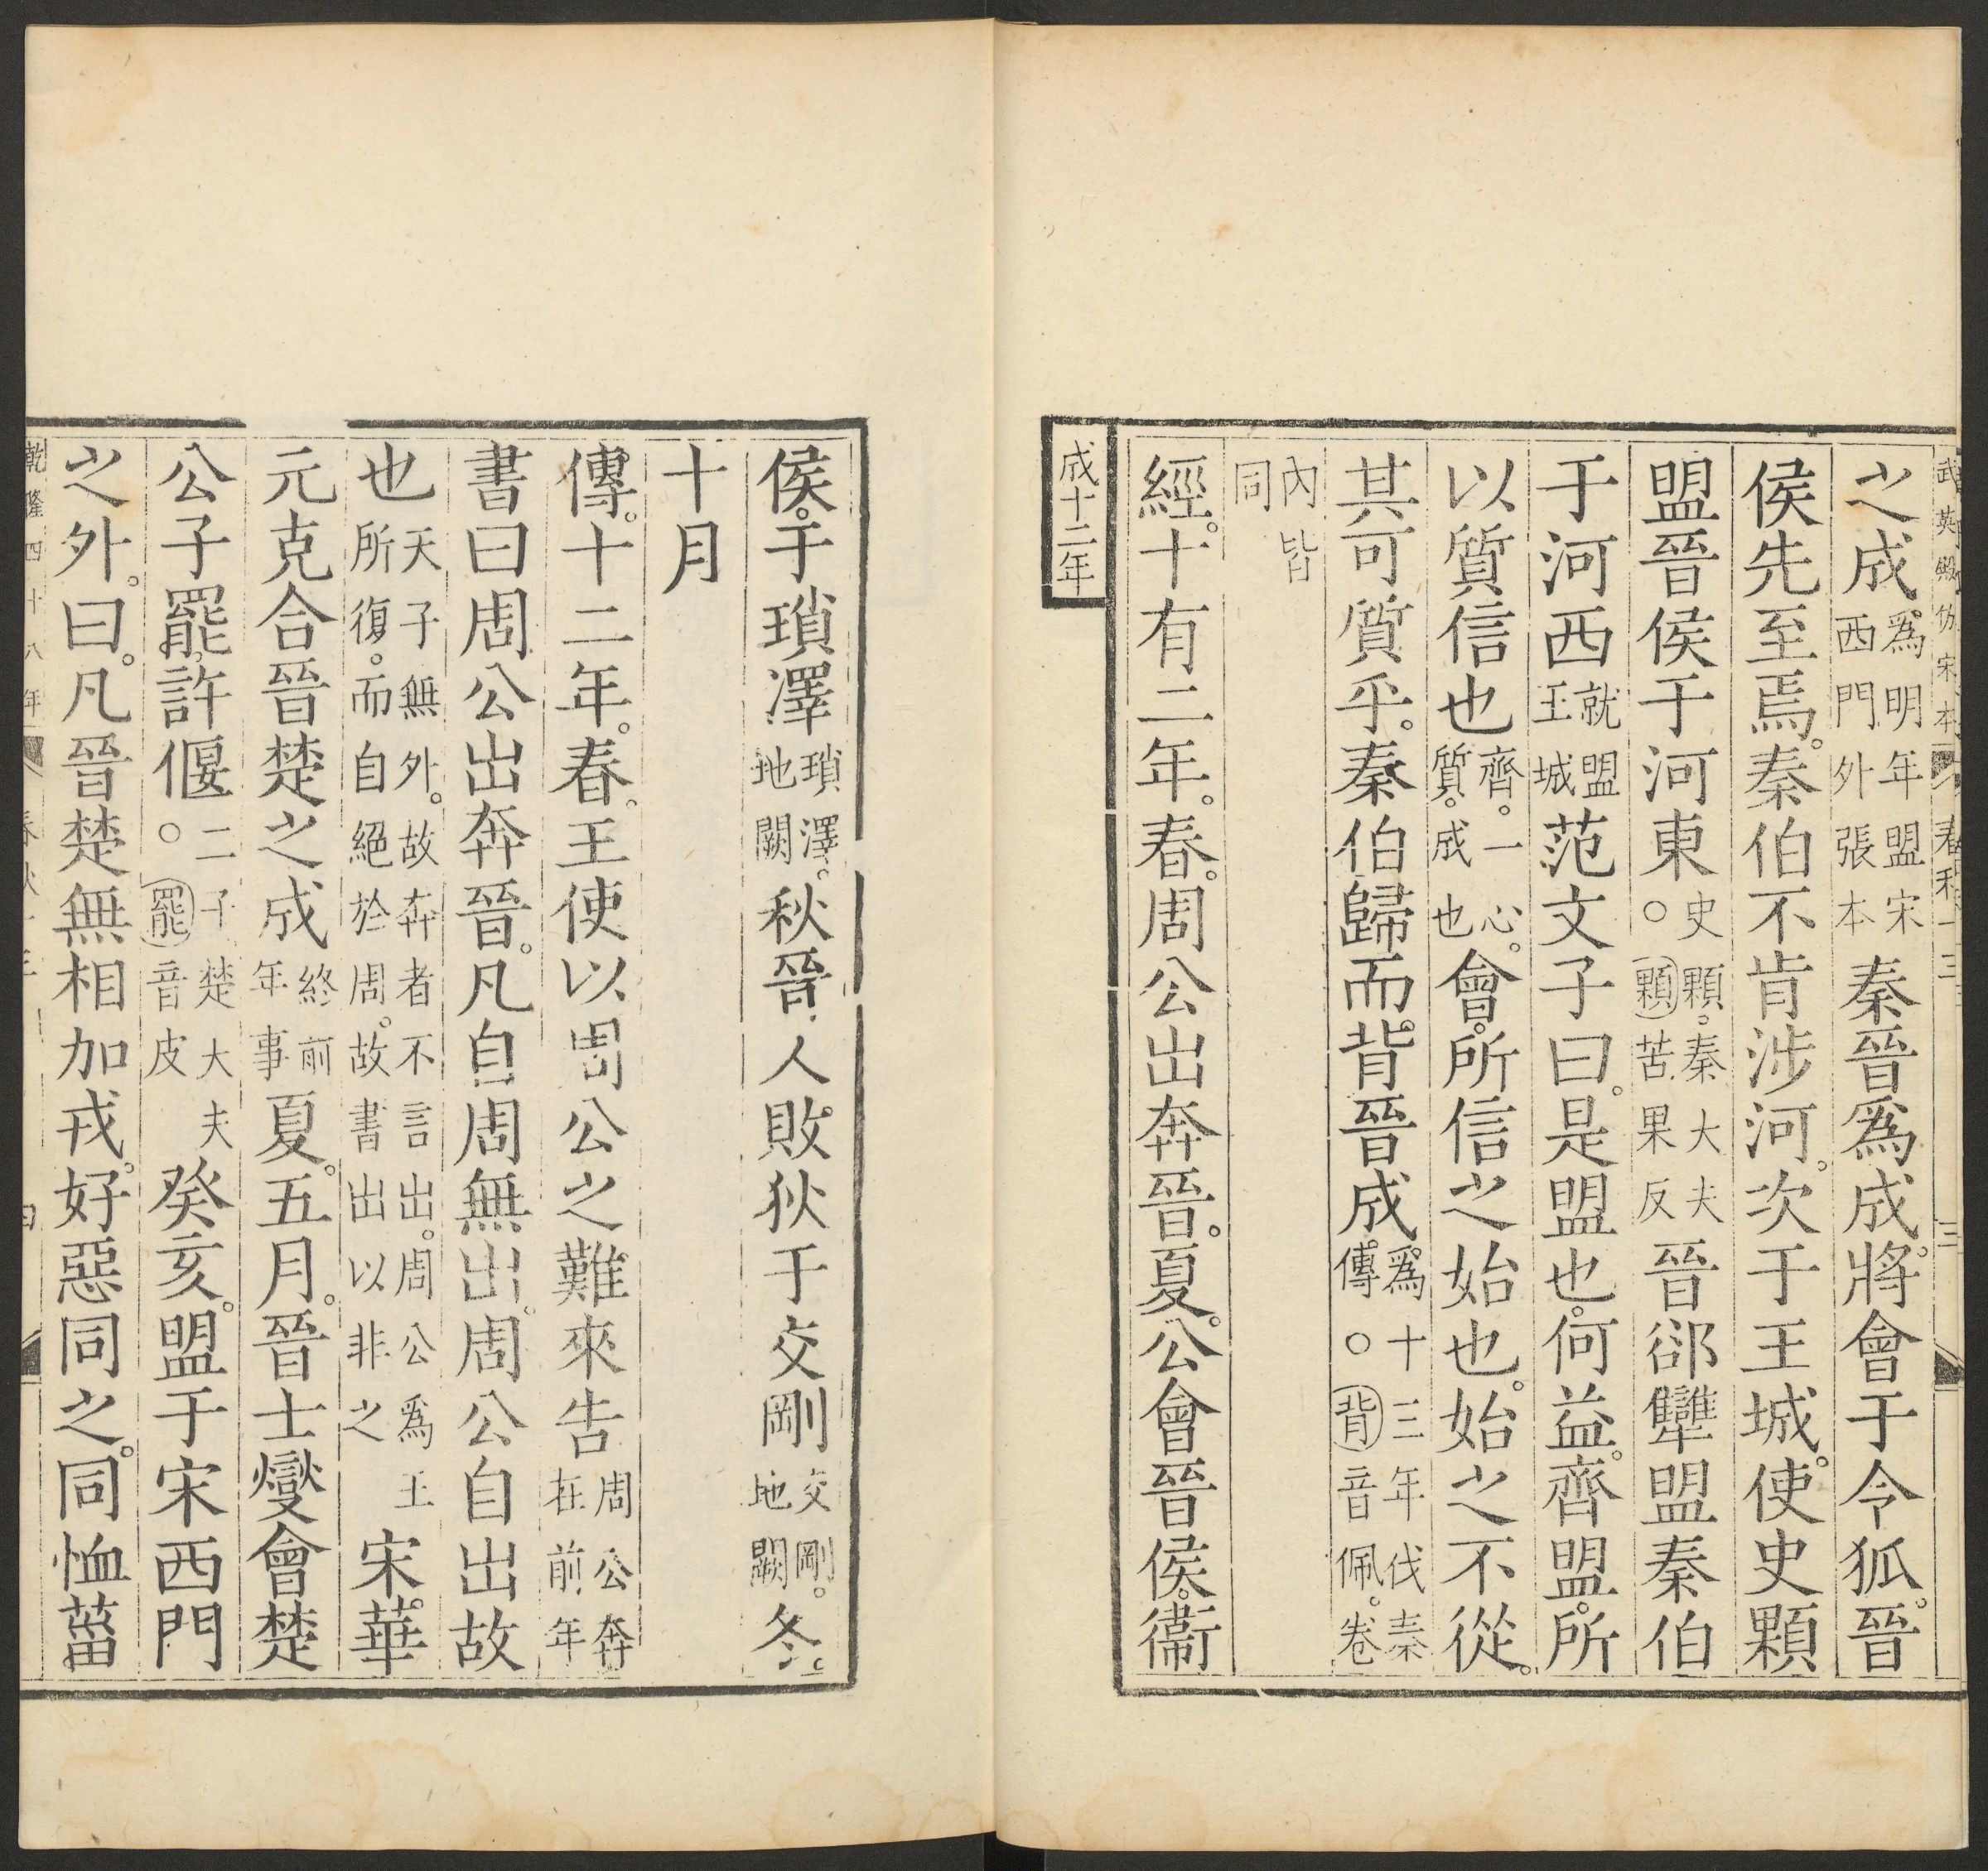 武英殿仿宋本 春秋十三 三
之成為明年盟宋西門外張本秦晉為成將會于令狐晉
侯先至焉秦伯不肯涉河次于王城使史顆
盟晉侯于河東史顆秦大夫○顆苦果反晉郤犨盟秦伯
于河西就盟王城范文子曰是盟也何益齊盟所
以質信也齊一心質成也會所信之始也始之不從
其可質乎秦伯歸而背晉成為十三年伐秦傳○背音佩卷
內皆同
經十有二年春周公出奔晉夏公會晉侯衞
成十二年
侯于瑣澤瑣澤地闕秋晉人敗狄于交剛交剛地闕冬
十月
傳十二年春王使以周公之難來告周公奔在前年
書曰周公出奔晉凡自周無出周公自出故
也天子無外故奔者不言出周公為王所復而自絕於周故書出以非之宋華
元克合晉楚之成終前年事夏五月晉士燮會楚
公子罷許偃二子楚大夫○罷音皮癸亥盟于宋西門
之外曰凡晉楚無相加戎好惡同之同恤菑
乾隆四十八年 春秋十三 四